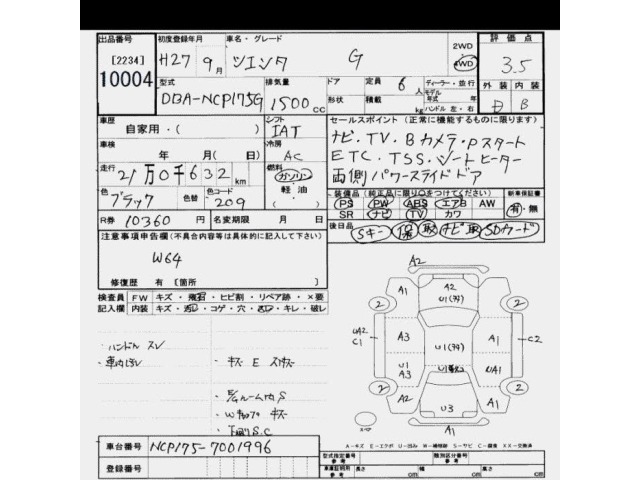 出品番号 初度登録年月 車名・グレード 2WD 評価点
[2234] H27 9月 シエンタ G 4WD 3.5
10004 型式 排気量 ドア 定員 6人 ディーラー・並行 外装 内装
モデル 年式 年
DBA-NCP175G 1500cc 形状 積載 kg ハンドル 左・右 B
車歴 シフト セールスポイント（正常に機能するものに限ります）
自家用・( ) IAT ナビ・TV・Bカメラ・Pスタート
車検 年 月(日) 冷房 AC ETC・TSS・シートヒーター
走行 21万0千632km 燃料 ガソリン 両側パワースライドドア
色 ブラック 色替 色コード 209 軽油 装備品（純正品に限り○をつけてください） 新車保証書
PS PW ABS エアB AW 有・無
R券 10360円 名変期限 月 日 SR ナビ TV カワ
注意事項申告欄（不具合内容等は具体的に記入して下さい） 後日品 Sキー 保 取 ナビ取 SDカード
W64
修復歴 有 [箇所 ]
検査員 FW キズ・飛石・ヒビ割・リペア跡・×要
記入欄 内装 キズ・汚レ・コゲ・穴・凹レ・キレ・破レ
A2
A1 A2 A1
2 U1(タタ) 2
UA2 A3 U1(タタ) A1 C2
C1
U1 A3 UA1
2 A2 A1 2
U3
A1
ハンドル スレ
キズ E スリキズ
スペア
下廻りS.C
A-キズ E-エクボ U-凹み W-補修跡 S-サビ C-腐食 XX-交換済
車台番号 NCP175-7001996
型式指定番号 参考 類別区分番号 参考
登録番号 車庫証明用 参考 長さ cm 幅 cm 高さ cm